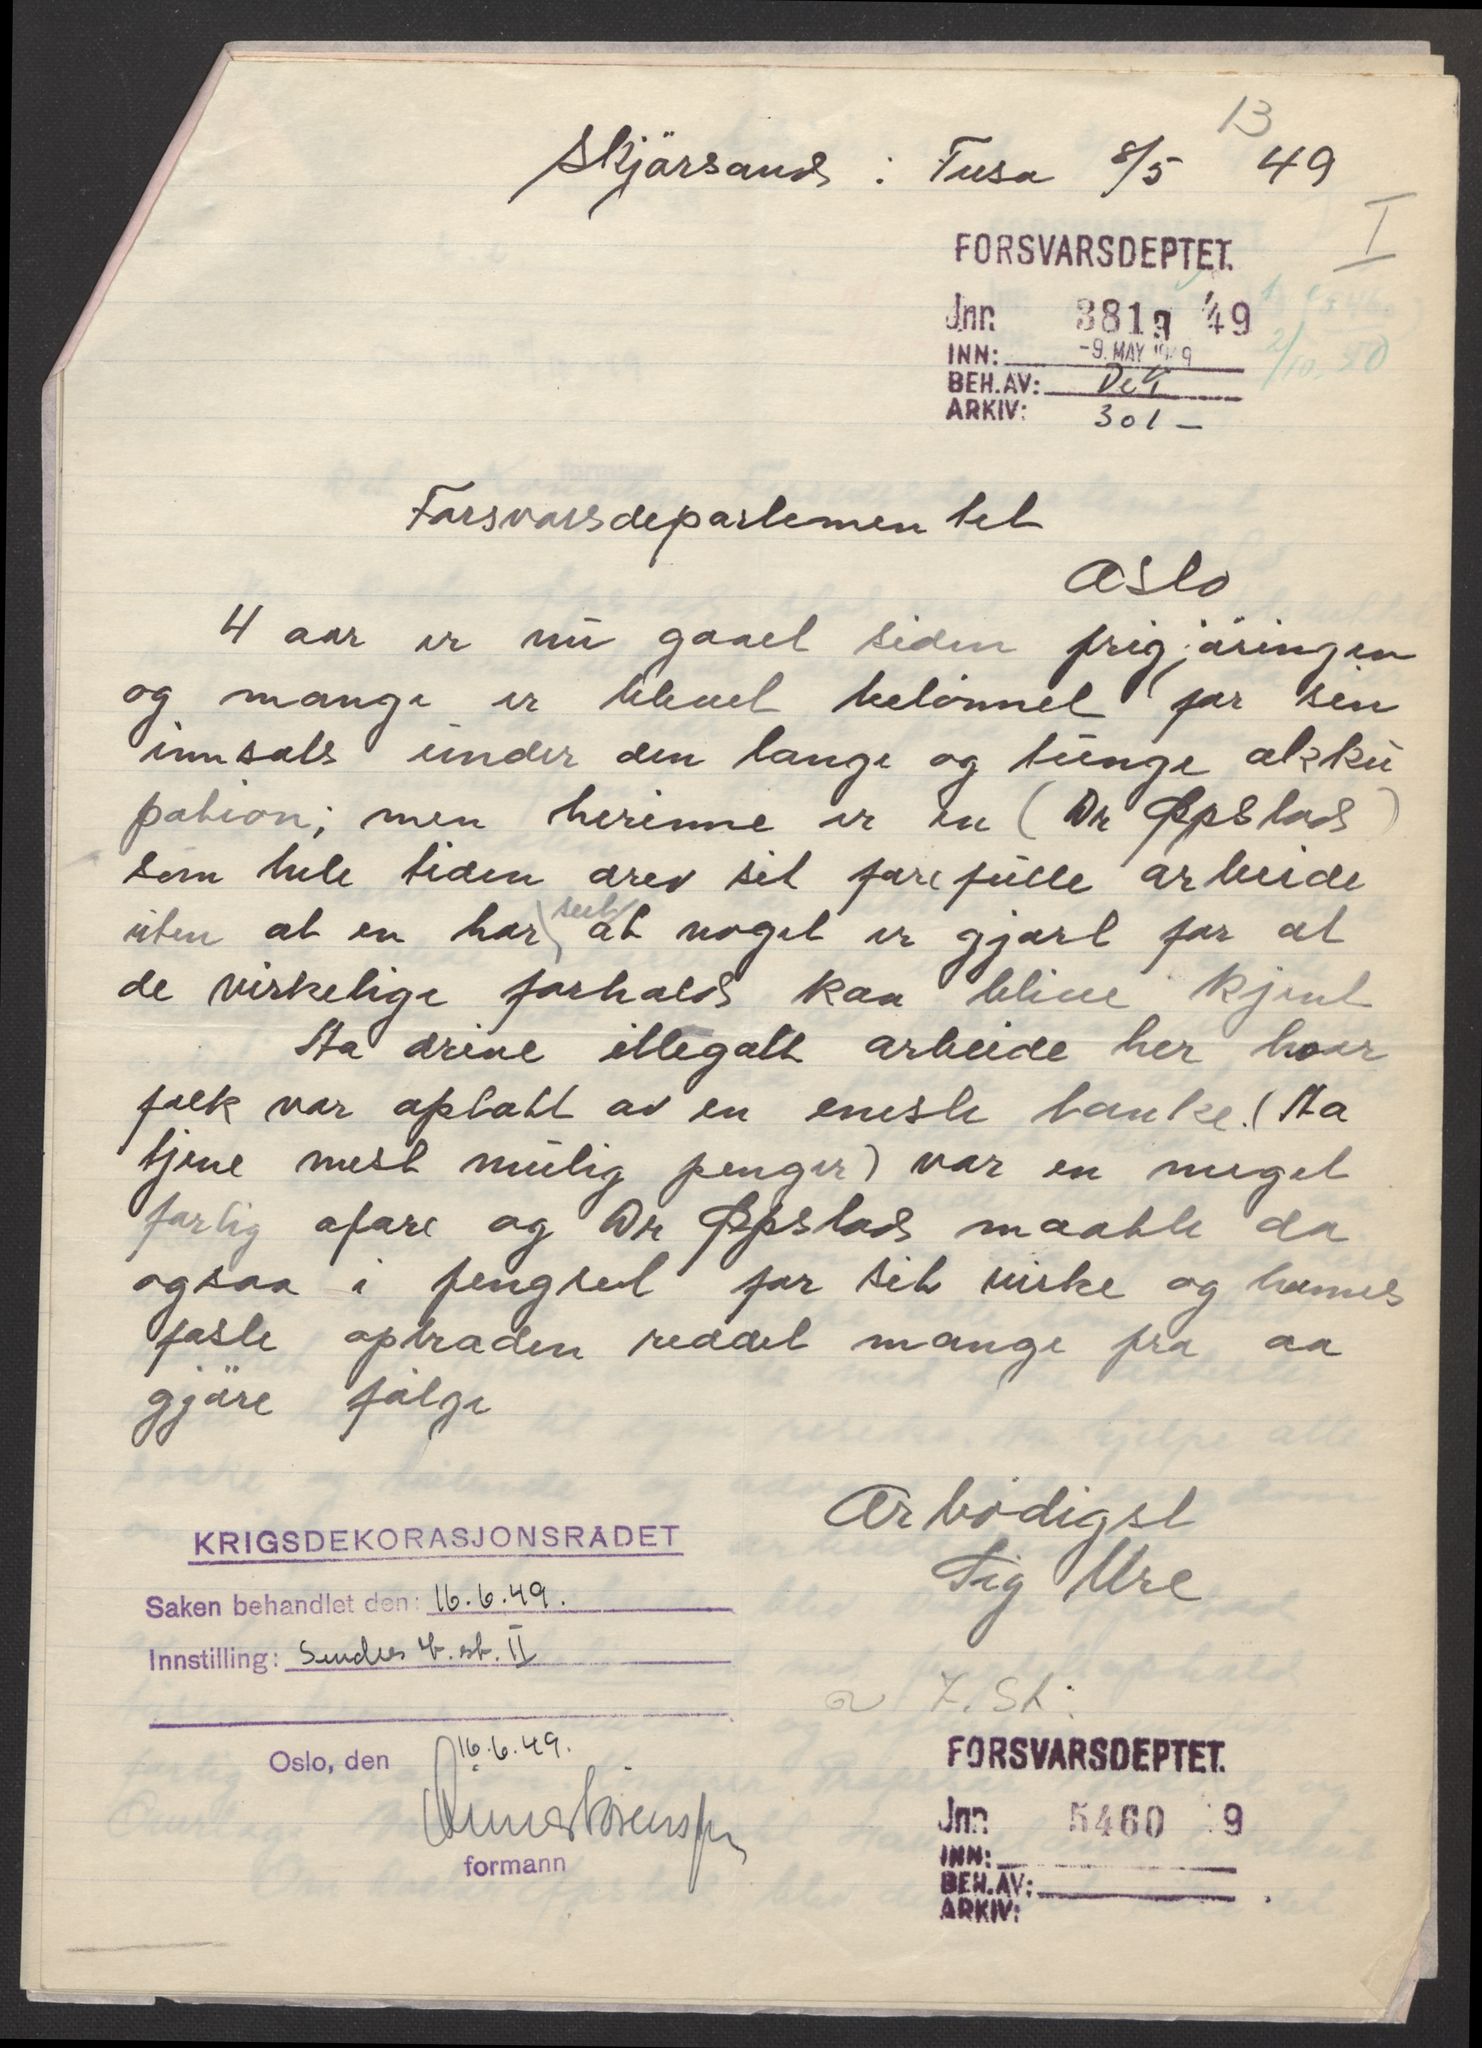 13
Skjärsand : Fusa 8/5 49
I
FORSVARSDEPTET.
Jnr. 3819 '49
INN: -9. MAY 1949
BEH.AV: Dek
ARKIV: 301 -
2/10. 50
Forsvarsdepartementet
Oslo
4 aar er nu gaaet siden frigjöringen
og mange er blevet belönnet for sin
innsats under den lange og tunge okku
pation; men herinne er en (Dr Øpstad)
som hele tiden drev sit farefulle arbeide
uten at en har seet at noget er gjort for at
de virkelige forhold kan blive kjent
Aa drive illegalt arbeide her hvor
folk var optatt av en eneste tanke. (Aa
tjene mest mulig penger) var en meget
farlig afære og Dr Øpstad maatte da
ogsaa i fengsel for sit virke og hannes
faste optræden reddet mange fra aa
gjöre fölge
Ærbödigst
Sig Ure
KRIGSDEKORASJONSRÅDET
Saken behandlet den: 16.6.49.
Innstilling: Sendes t. st. II
Oslo, den 16.6.49.
formann
7. St.
FORSVARSDEPTET.
Jnr. 5460 9
INN:
BEH.AV:
ARKIV: